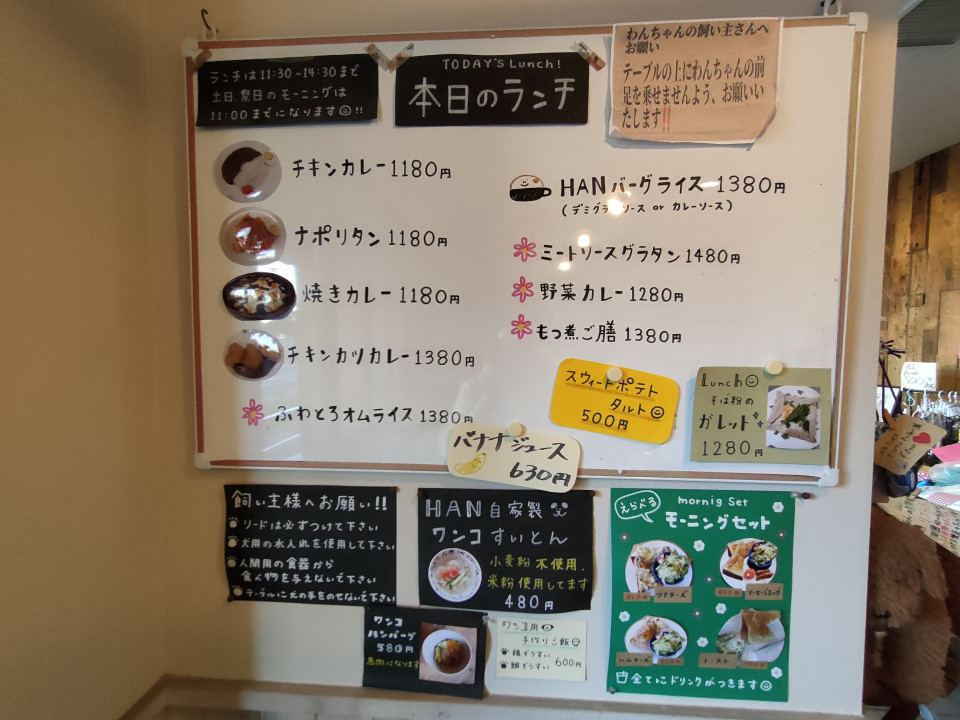 ランチは11:30-14:30まで
土日.祭日のモーニングは
11:00までになります!!
TODAY's Lunch!
本日のランチ
わんちゃんの飼い主さんへ
お願い
テーブルの上にわんちゃんの前
足を乗せませんよう、お願いい
たします!!
チキンカレー1180円
ナポリタン1180円
焼きカレー1180円
チキンカツカレー1380円
ふわとろオムライス1380円
HANバーグライス1380円
(デミグラスソース or カレーソース)
ミートソースグラタン1480円
野菜カレー1280円
もつ煮ご膳1380円
スウィートポテト
タルト
500円
Lunch
そば粉の
ガレット
1280円
バナナジュース
630円
飼い主様へお願い!!
リードは必ずつけて下さい
犬用の水入れを使用して下さい
人間用の食器から
食べ物を与えないで下さい
テーブルに犬の手をのせないで下さい
HAN自家製
ワンコすいとん
小麦粉不使用.
米粉使用してます
480円
ワンコ
ハンバーグ
580円
馬肉になります
ワンコ用
手作りご飯
鶏ぞうすい
鮭ぞうすい
600円
えらべる
mornig Set
モーニングセット
ツナチーズ
ソーセージエッグ
トースト
全てにドリンクがつきます